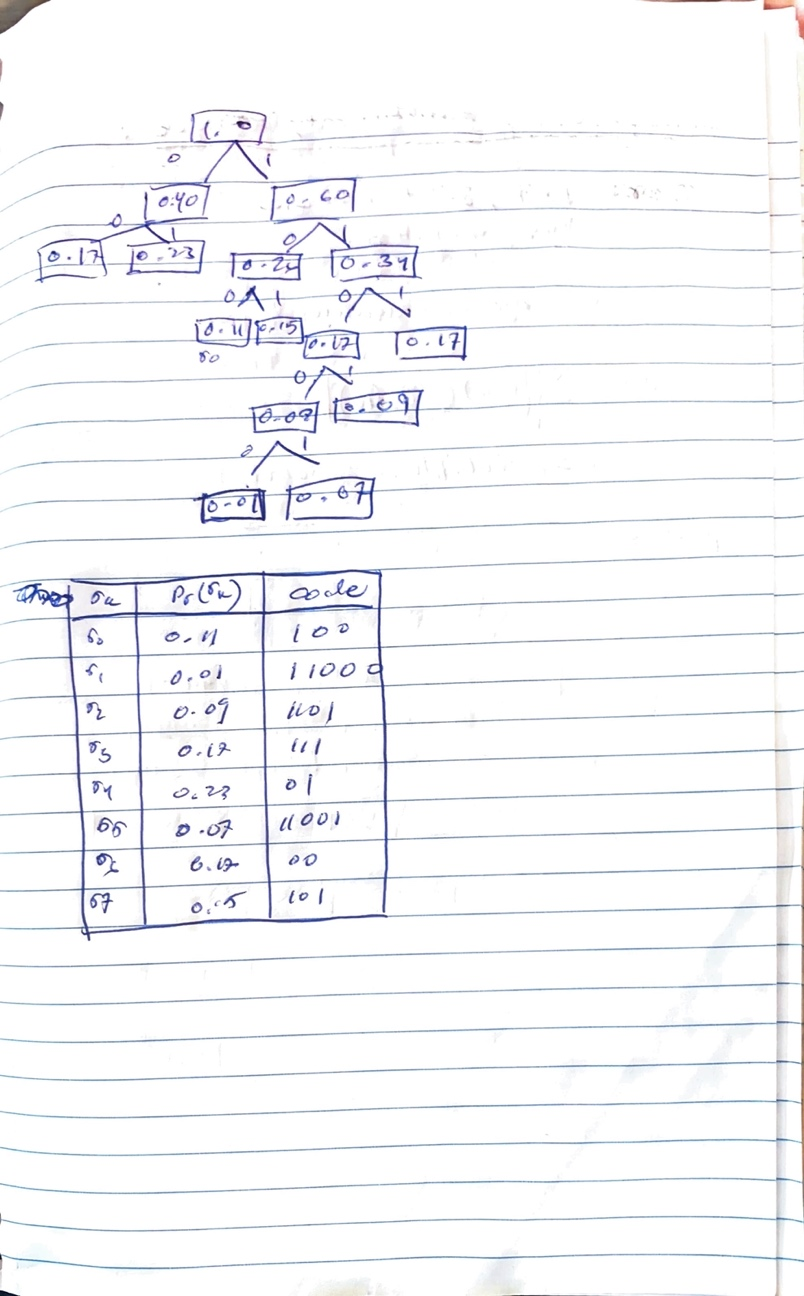 1.0
0 1
0.40 0.60
0 1 0 1
0.17 0.23 0.26 0.34
0 1 0 1
0.11 0.15 0.17 0.17
σ0
0 1
0.08 0.09
0 1
0.01 0.07
σk Pr(σk) code
σ0 0.11 100
σ1 0.01 11000
σ2 0.09 1101
σ3 0.17 111
σ4 0.23 01
σ5 0.07 11001
0.17 00
σ7 0.15 101